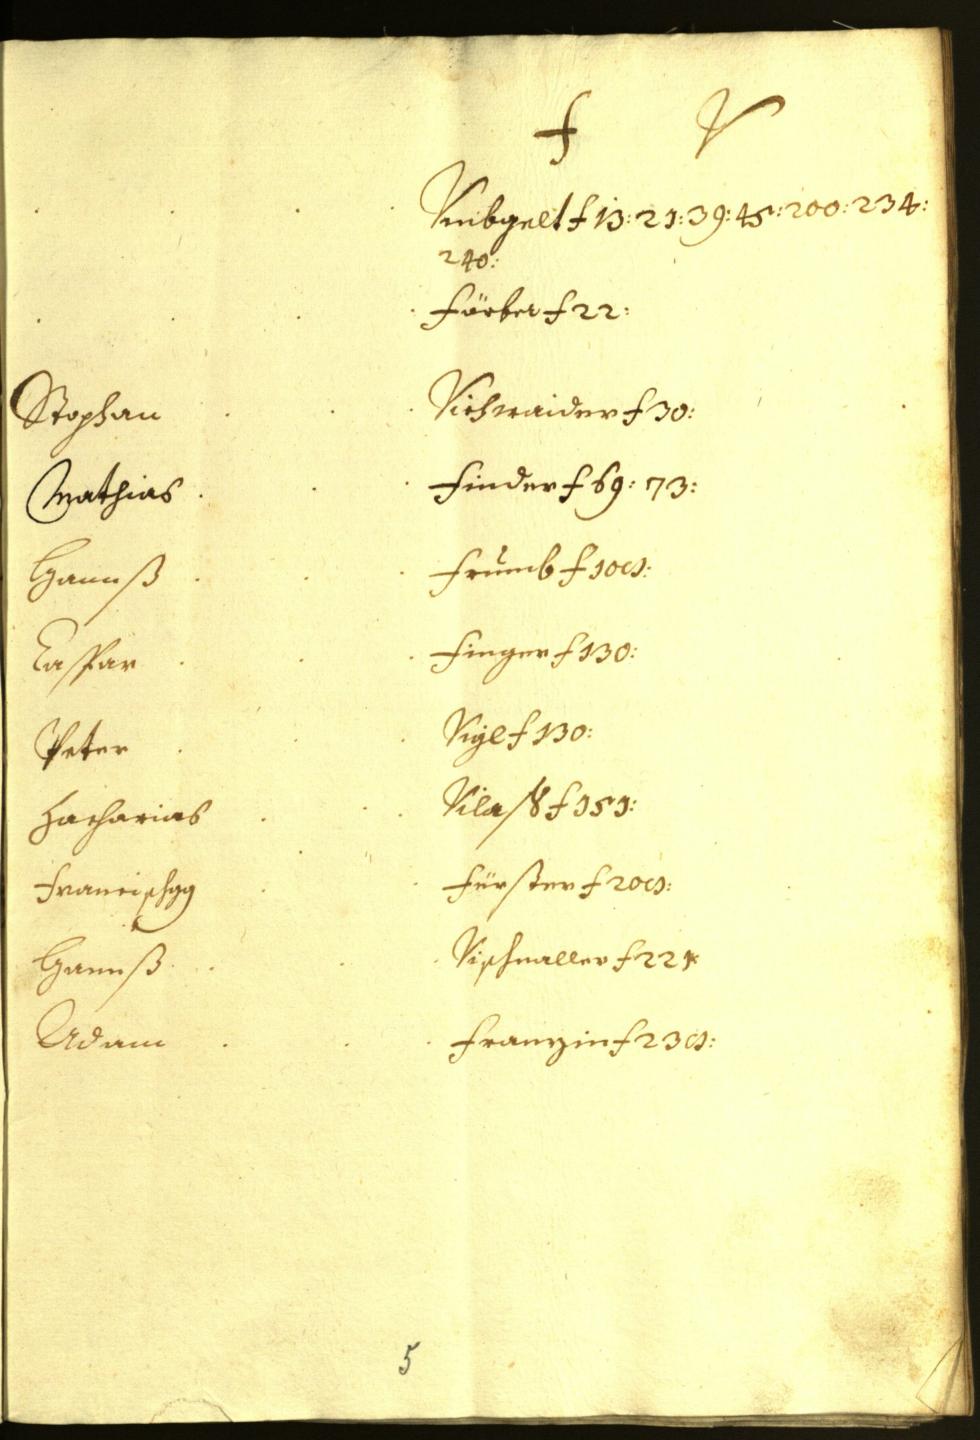 F V
Vmbgelt f 13: 21: 39: 45: 200: 234:
240:
Färber f 22:
Stephan Vichwaider f 30:
Mathias Finder f 69: 73:
Hannß Frumb f 106:
Caspar Finger f 130:
Peter Vigl f 130:
Zacharias f 151:
Fürster f 206:
Hannß Vischnaller f 221
Adam Franzin f 236:
5